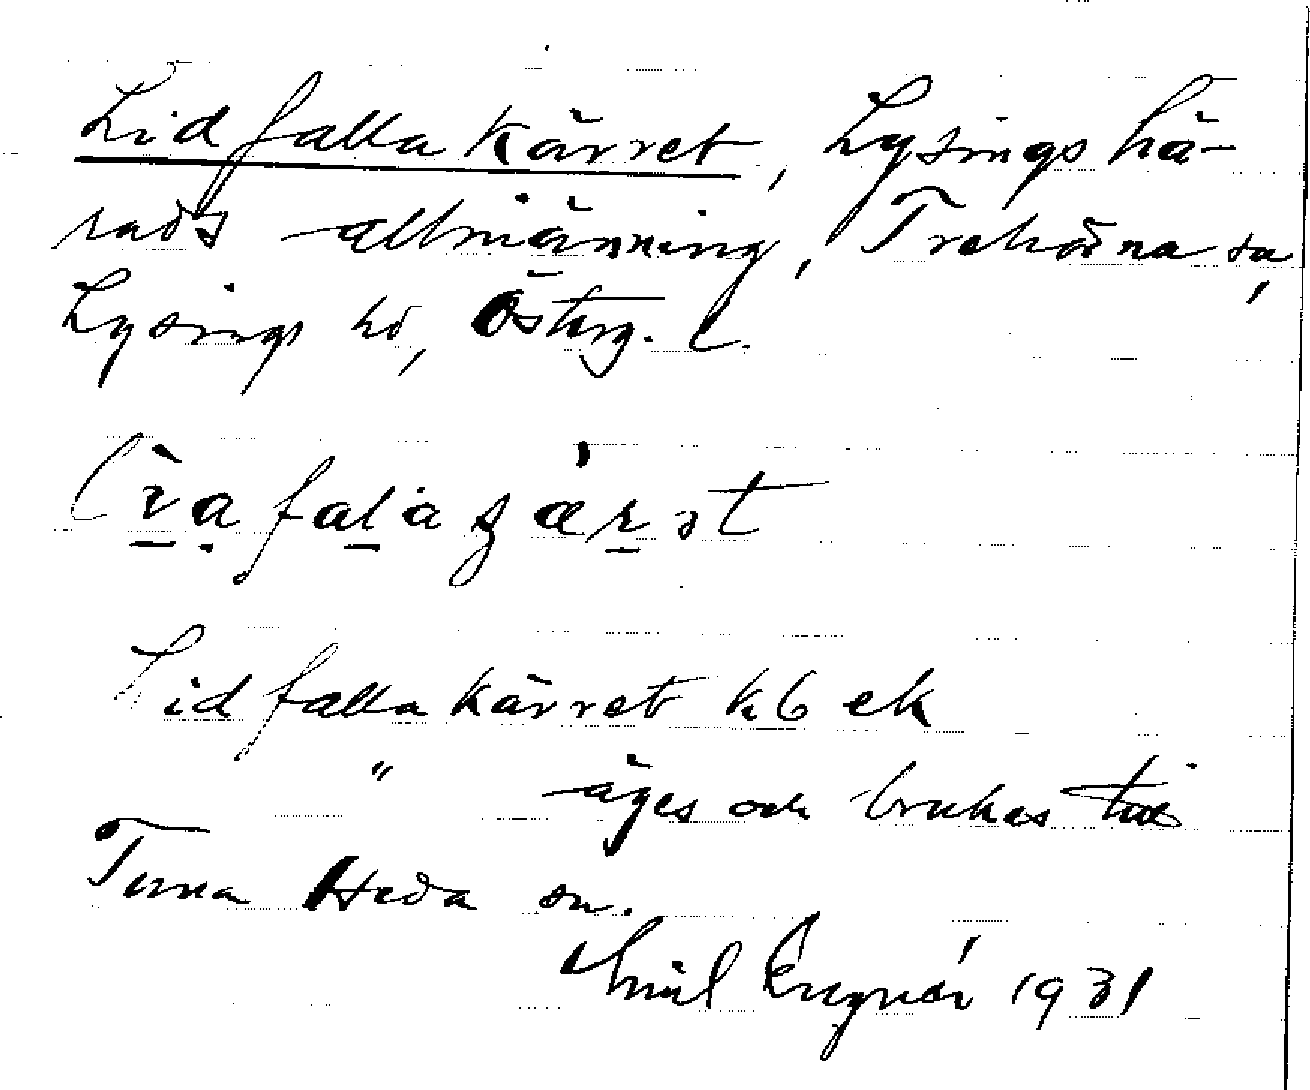 Lidfallakärret, Lysings hä-
rads allmänning, Trehörna sn,
Lysings hd, Österg. l.
Lidfallakärret k 6 ek
" äges och brukas till
Tuna Heda sn.
Emil 1931